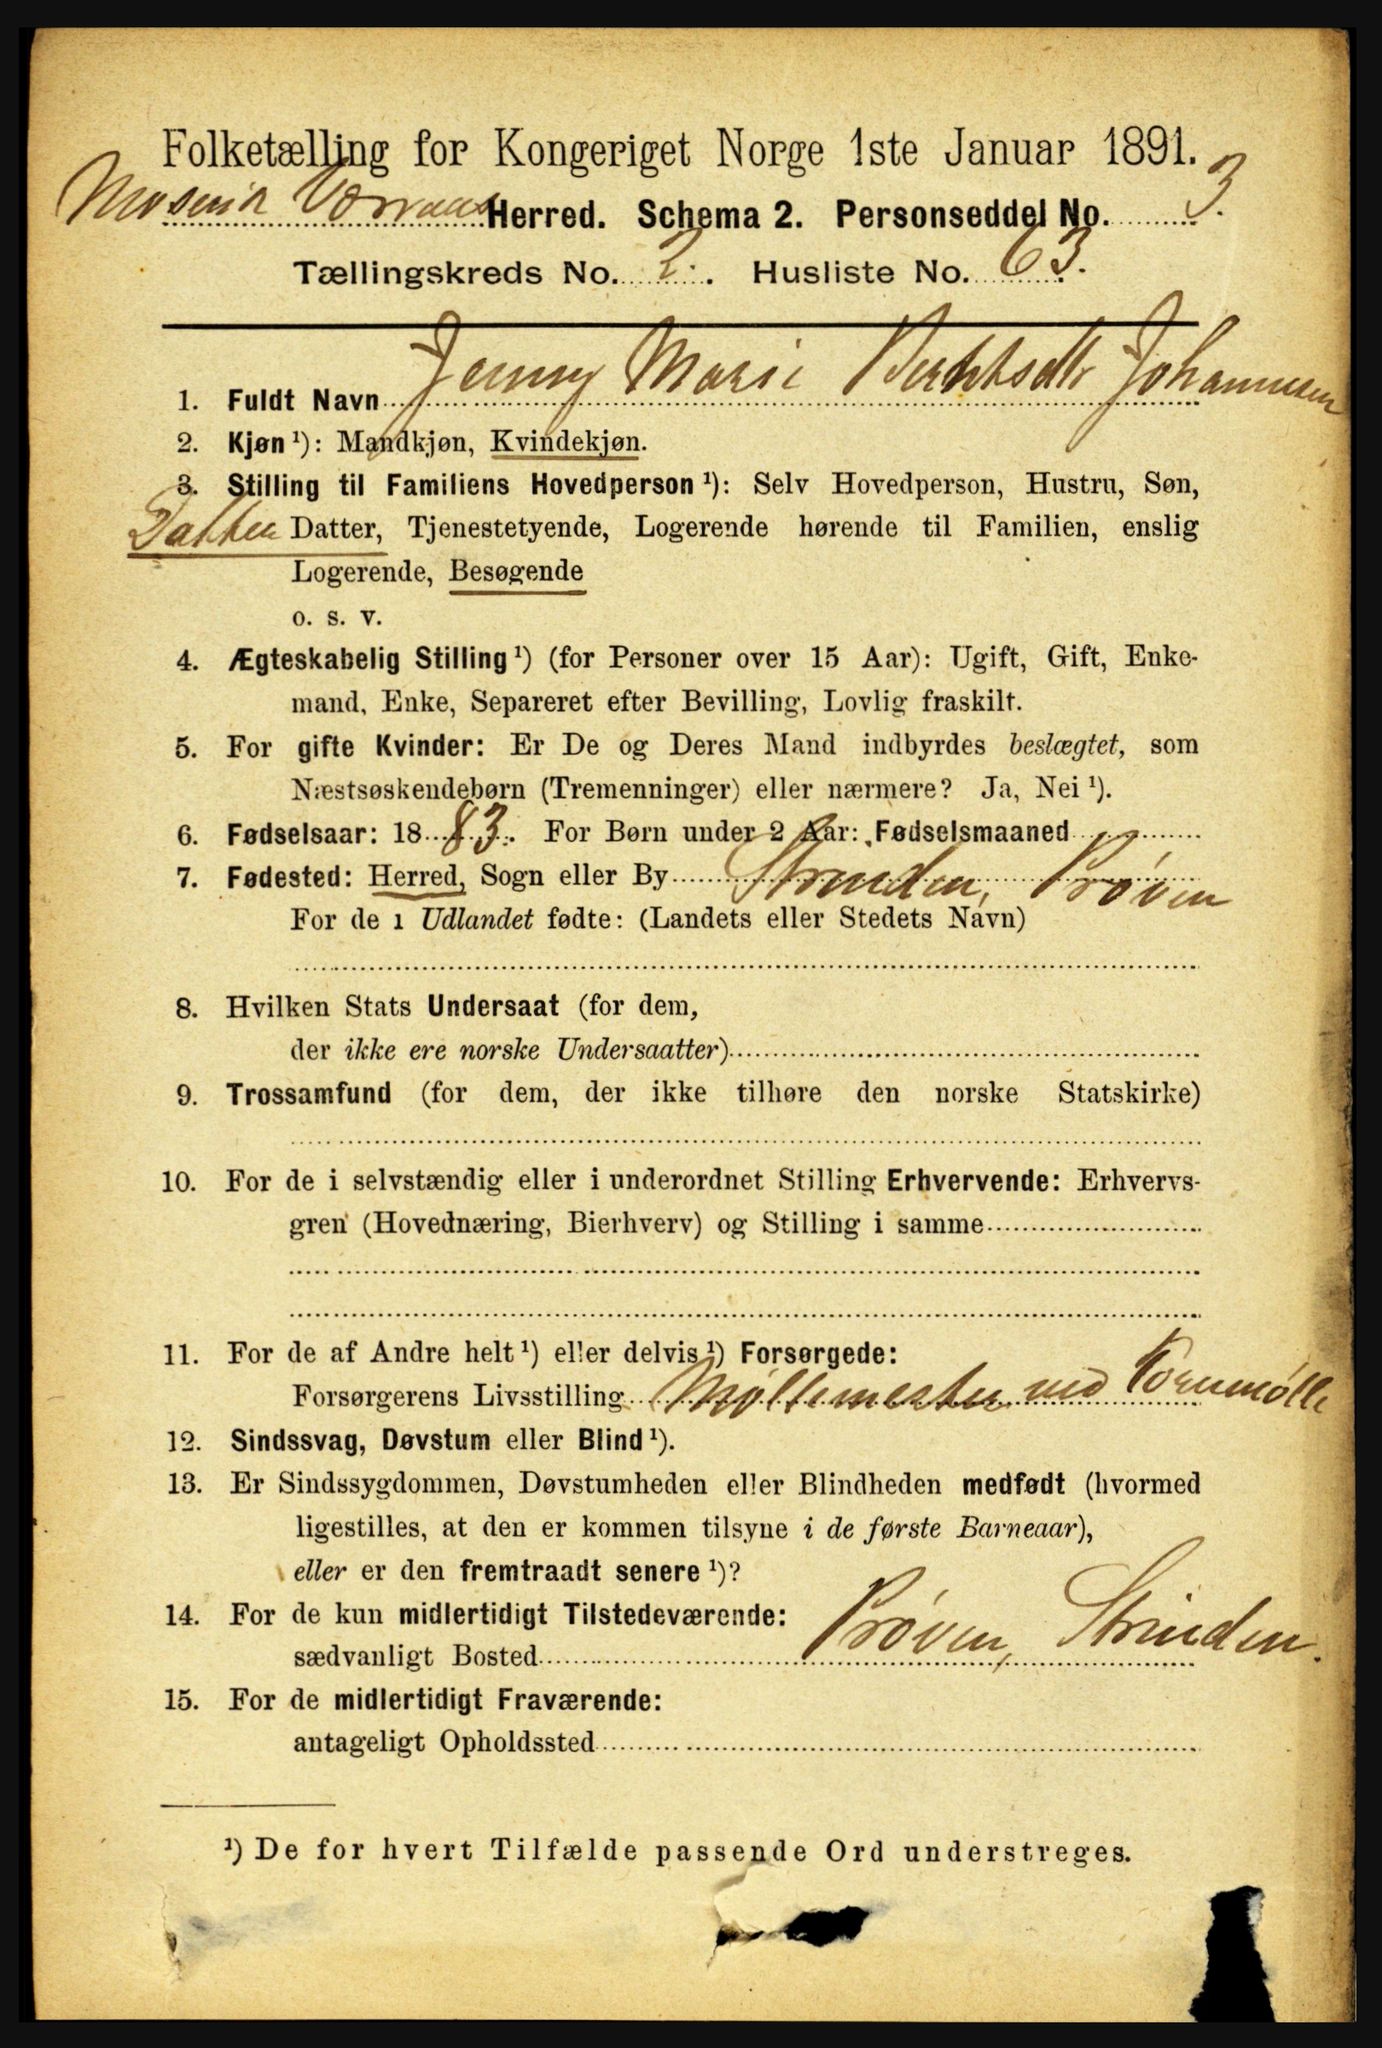 Folketælling for Kongeriget Norge 1ste Januar 1891.
Mosvik Verran Herred. Schema 2. Personseddel No. 3.
Tællingskreds No. 2. Husliste No. 63.
1. Fuldt Navn Jenny Marie Berntsdtr Johannesen
2. Kjøn ¹): Mandkjøn, Kvindekjøn.
3. Stilling til Familiens Hovedperson ¹): Selv Hovedperson, Hustru, Søn,
Datter Datter, Tjenestetyende, Logerende hørende til Familien, enslig
Logerende, Besøgende
o. s. v.
4. Ægteskabelig Stilling ¹) (for Personer over 15 Aar): Ugift, Gift, Enke-
mand, Enke, Separeret efter Bevilling, Lovlig fraskilt.
5. For gifte Kvinder: Er De og Deres Mand indbyrdes beslægtet, som
Næstsøskendebørn (Tremenninger) eller nærmere? Ja, Nei ¹).
6. Fødselsaar: 1883. For Børn under 2 Aar: Fødselsmaaned
7. Fødested: Herred, Sogn eller By Strinden, Prøven
For de i Udlandet fødte: (Landets eller Stedets Navn)
8. Hvilken Stats Undersaat (for dem,
der ikke ere norske Undersaatter)
9. Trossamfund (for dem, der ikke tilhøre den norske Statskirke)
10. For de i selvstændig eller i underordnet Stilling Erhvervende: Erhvervs-
gren (Hovednæring, Bierhverv) og Stilling i samme
11. For de af Andre helt ¹) eller delvis ¹) Forsørgede:
Forsørgerens Livsstilling Møllemester ved Kornmølle
12. Sindssvag, Døvstum eller Blind ¹).
13. Er Sindssygdommen, Døvstumheden eller Blindheden medfødt (hvormed
ligestilles, at den er kommen tilsyne i de første Barneaar),
eller er den fremtraadt senere ¹)?
14. For de kun midlertidigt Tilstedeværende:
sædvanligt Bosted Prøven, Strinden.
15. For de midlertidigt Fraværende:
antageligt Opholdssted
¹) De for hvert Tilfælde passende Ord understreges.